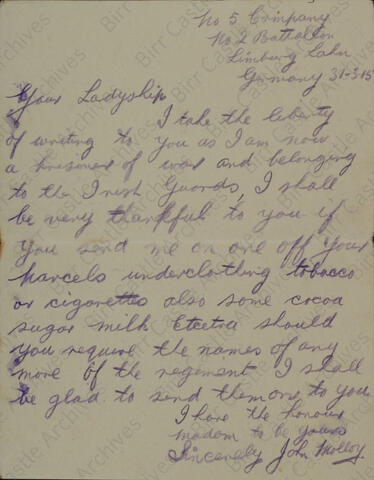 No 5 Crimpany
No 2 Battallon
Limburg Lahn
Germany 31-3-15
Your Ladyship
I take the liberty
of writing to you as I am now
a prisoner of war and belonging
to the Irish Guards, I shall
be very thankful to you if
you send me on one off your
Marcels underclothing tobacco
or cigarettes also some cocoa
sugar milk Etcetra should
you require the names of any
more of the regement I shall
be glad to send them on to you
I have the honour
madom to be yours
Sincerely John Molloy
Birr Castle Archives